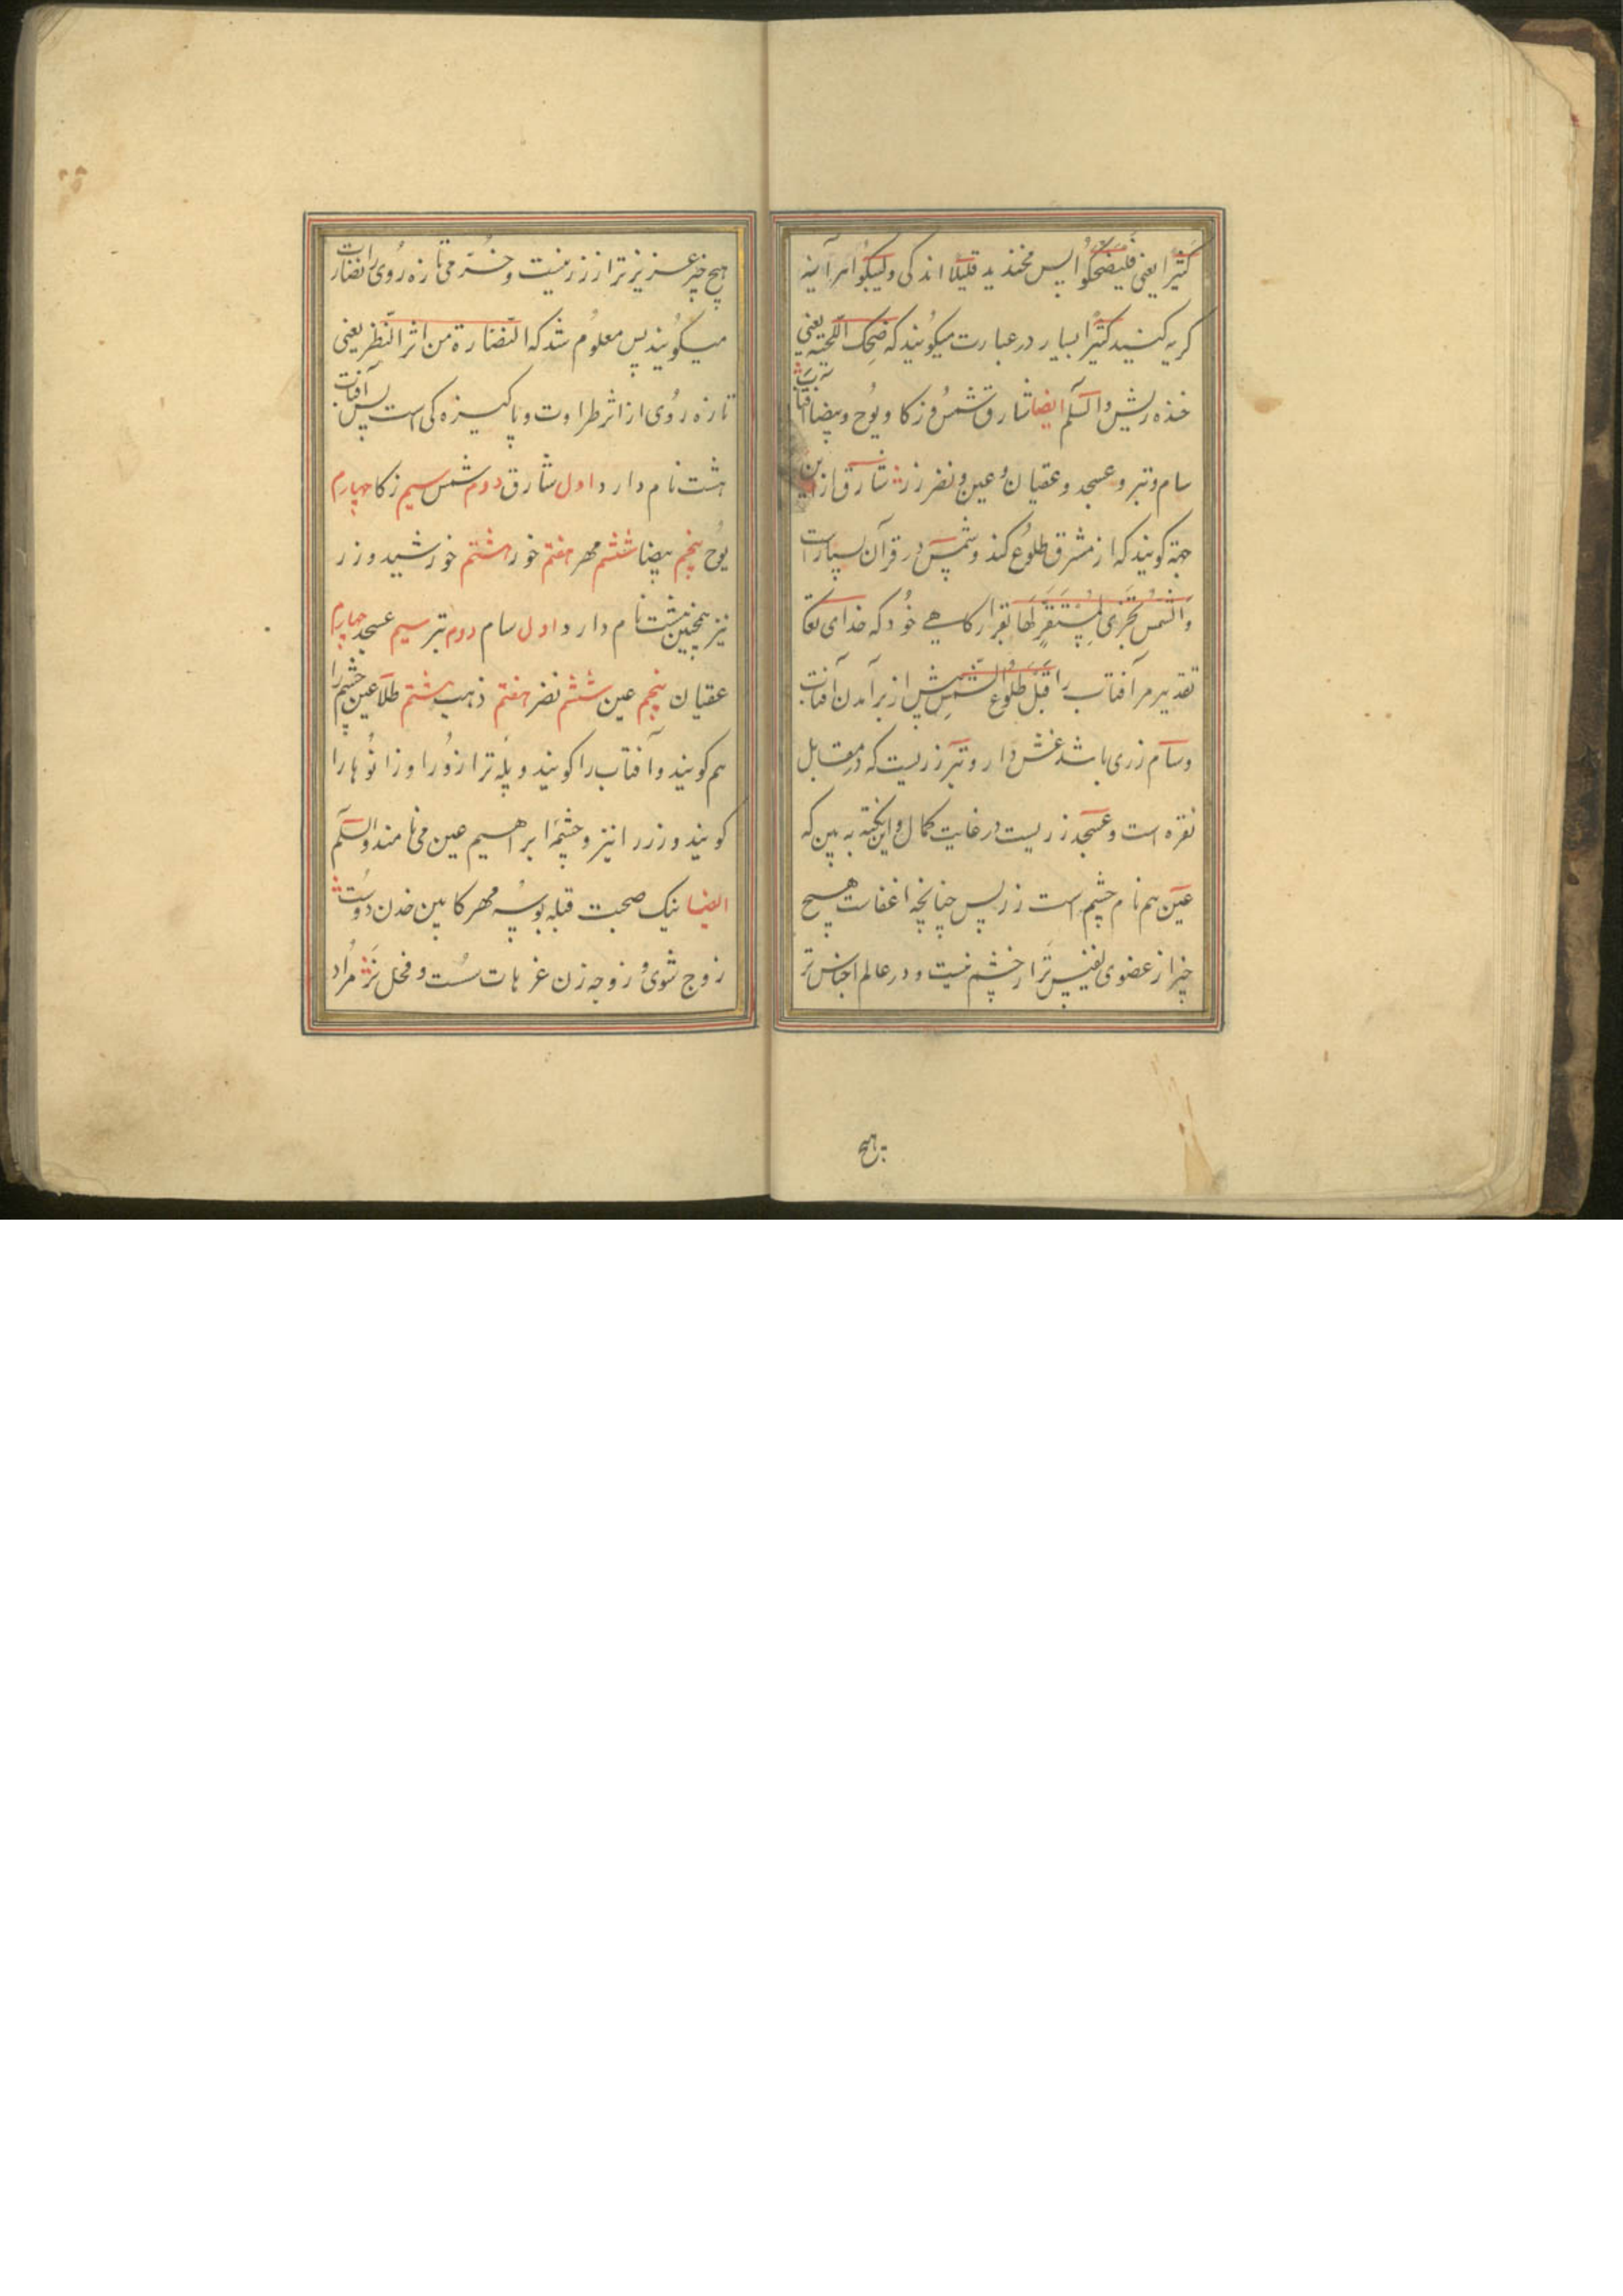 کثیرا یعنی فلیضحکوا پس بخندید قلیلا اندکی ولیبکوا هرآینه
کریه کنید کثیرا بسیار در عبارت میکویند که ضحک اللحیه یعنی
خنده ریش والسلم ایضا شارق شمس و زکا و یوح و بیضا آفتاب
سام و تبر و عسجد و عقیان و عین و نضر زر شارق از این
جهة کویند که از مشرق طلوع کند و شمس در قرآن بسیار است
والشمس تجری لمستقر لها بقرار کاهی خود که خدای تعا
تقدیر مر آفتاب را قبل طلوع الشمس پیش از برآمدن آفتاب
و سام زری باشد غش دار و تبر زریست که در مقابل
نقره است و عسجد زریست در غایت کمال و این نکته به بین که
عین هم نام چشم است زر پس چنانچه اعضاست هیچ
چیز از عضوی نفیس تر از چشم نیست و در عالم اجناس تر
هیچ
هیچ چیز عزیز تر از زر نیست و خرمی تازه روی را نضارت
میکویند پس معلوم شد که النضارة من اثر النظر یعنی
تازه روی از اثر طراوت و پاکیزه کی است پس آفتاب
هشت نام دارد اول شارق دوم شمس سیم زکا چهارم
یوح پنجم بیضا ششم مهر هفتم خور هشتم خورشید و زر
نیز همچنین هشت نام دارد اول سام دوم تبر سیم عسجد چهارم
عقیان پنجم عین ششم نضر هفتم ذهب هشتم طلا عین چشم را
هم کویند و آفتاب را کویند و پله ترازو را و زانوها را
کویند و زر را نیز و چشمه ابراهیم عین می نامند والسلم
ایضا نیک صحبت قبله بوسه مهر کابین خدن دوست
زوج شوی و زوجه زن غر هات سست و فحل نر مراد